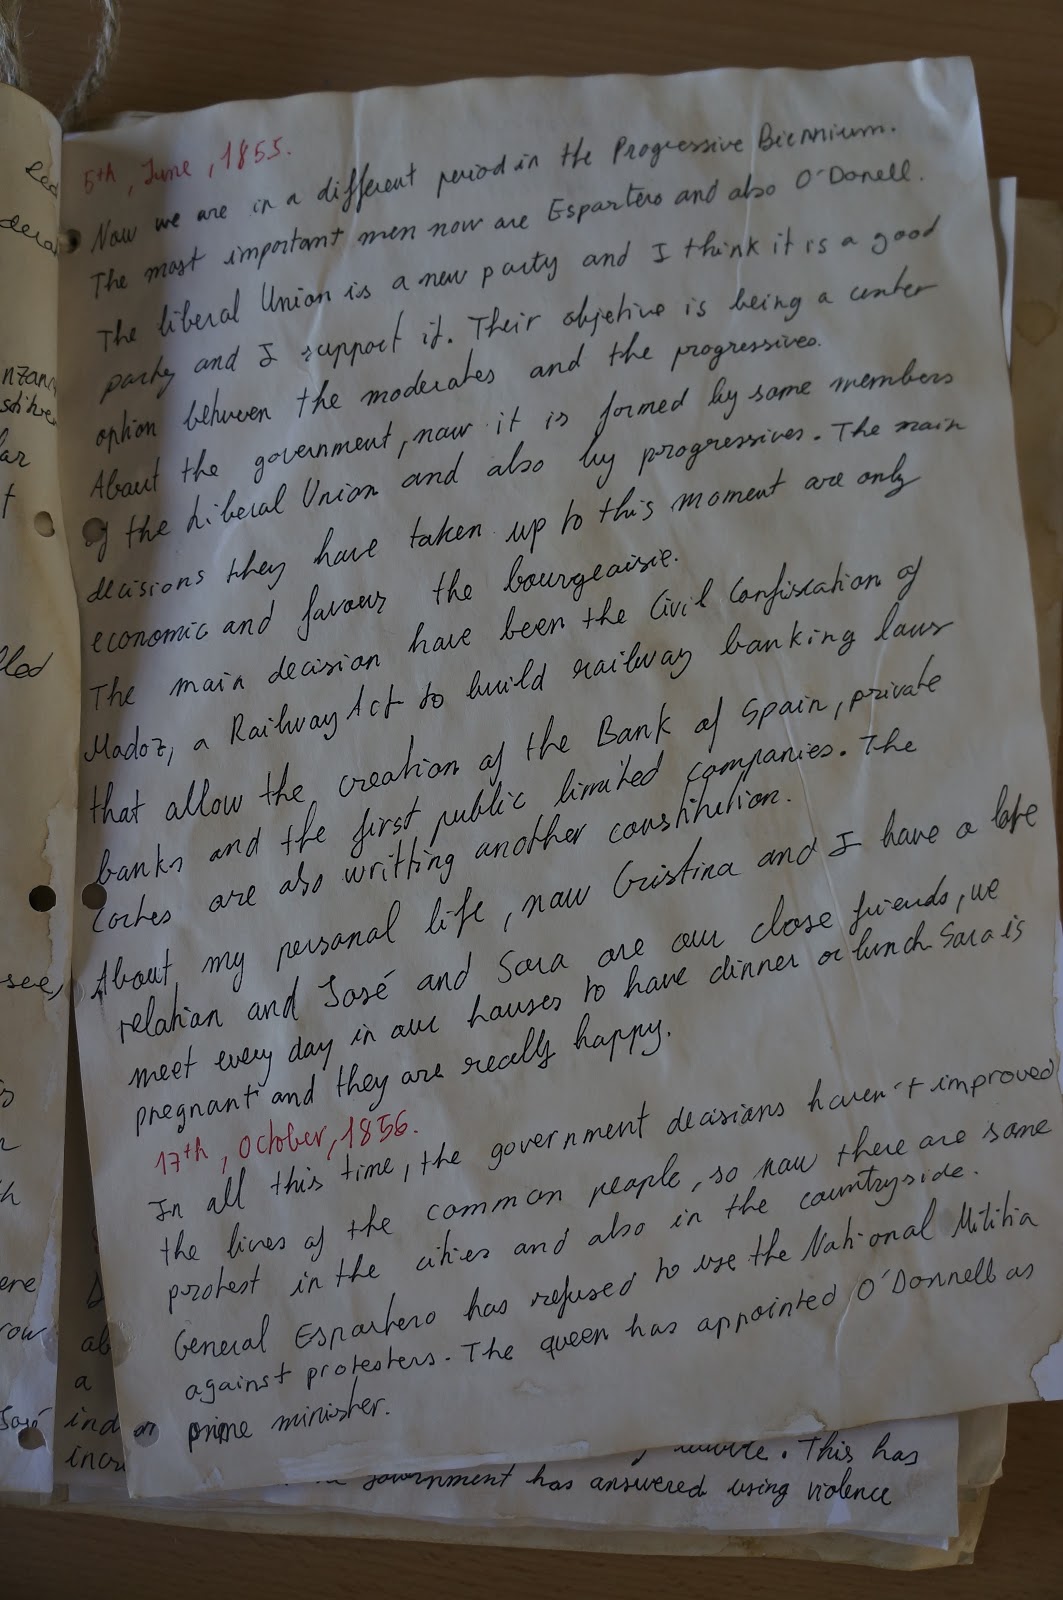 5th, June, 1855.
Now we are in a different period in the Progressive Biennium.
The most important men now are Espartero and also O'Donell.
The liberal Union is a new party and I think it is a good
party and I support it. Their objetive is being a center
option between the moderates and the progressives.
About the government, now it is formed by some members
of the Liberal Union and also by progressives. The main
decisions they have taken up to this moment are only
economic and favour the bourgeoisie.
The main decision have been the Civil Confiscation of
Madoz, a Railway Act to build railway banking laws
that allow the creation of the Bank of Spain, private
banks and the first public limited companies. The
Cortes are also writting another constitution.
About my personal life, now Cristina and I have a lofe
relation and José and Sara are our close friends, we
meet every day in our houses to have dinner or lunch. Sara is
pregnant and they are really happy.
17th, October, 1856.
In all this time, the government decisions haven't improved
the lives of the common people, so now there are some
protest in the cities and also in the countryside.
General Espartero has refused to use the National Militia
against protesters. The queen has appointed O'Donnell as
prime minister.
This has
government has answered using violence
see,
ere
row
José
ab
a
ind
incr